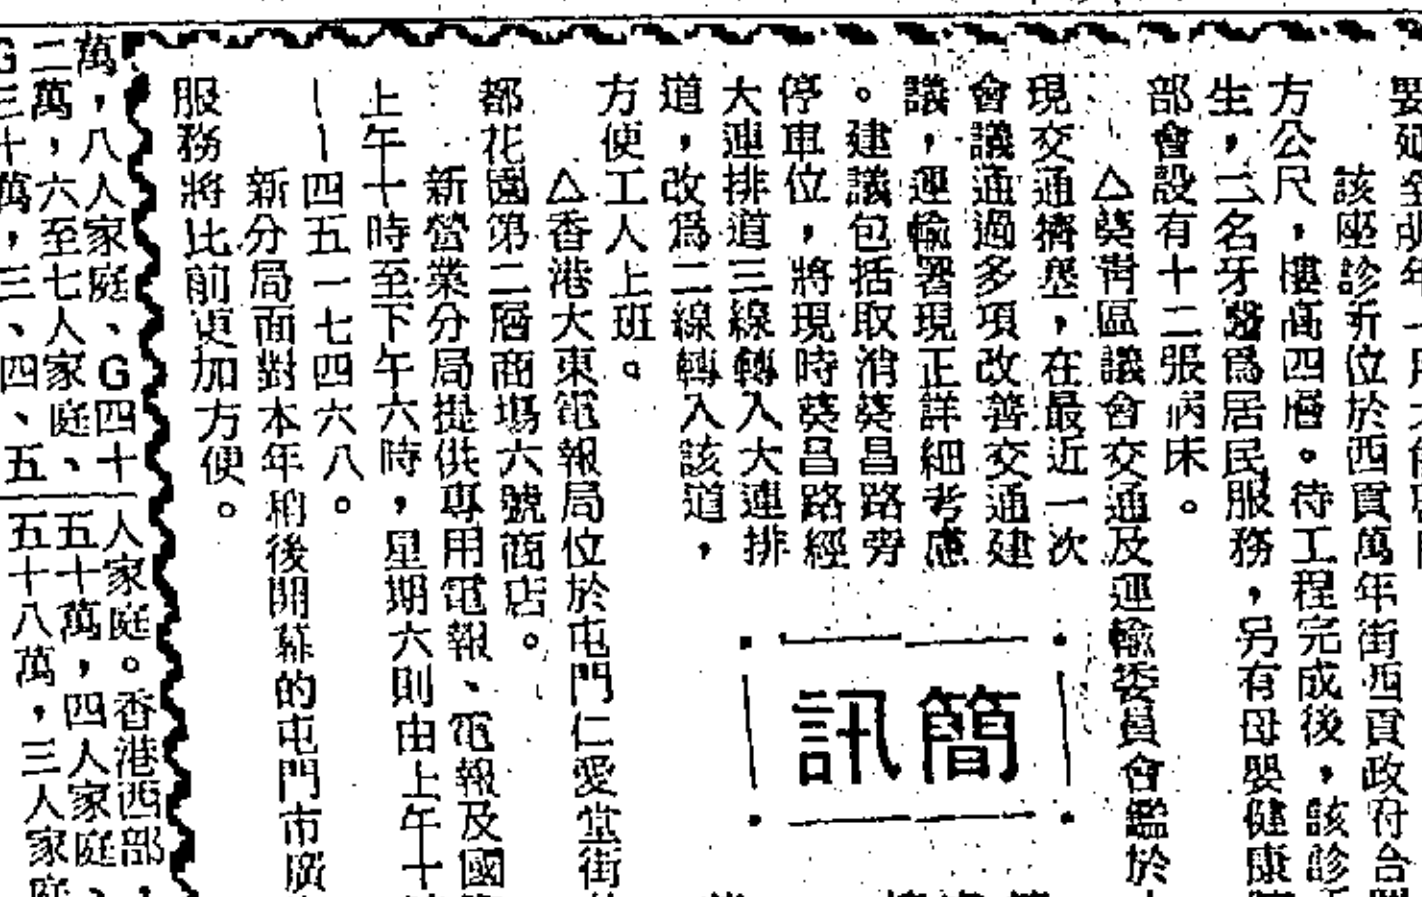 該座診所位於西貢萬年街西貢政府合
方公尺，樓高四層。待工程完成後，該診
生，二名牙醫爲居民服務，另有母嬰健康
部會設有十二張病床。
△葵青區議會交通及運輸委員會鑑於
現交通擠塞，在最近一次
會議通過多項改善交通建
議，運輸署現正詳細考慮
。建議包括取消葵昌路旁
停車位，將現時葵昌路經
大連排道三線轉入大連排
道，改爲二線轉入該道，
方便工人上班。
簡訊
△香港大東電報局位於屯門仁愛堂街
都花園第二層商場六號商店。
新營業分局提供專用電報、電報及國
上午十時至下午六時，星期六則由上午十
——四五一七四六八。
新分局面對本年稍後開幕的屯門市廣
服務將比前更加方便。
萬，八人家庭、G四十
二萬，六至七人家庭、
G三十萬，三、四、五
人家庭。香港西部，
五十萬，四人家庭、
五十八萬，三人家庭